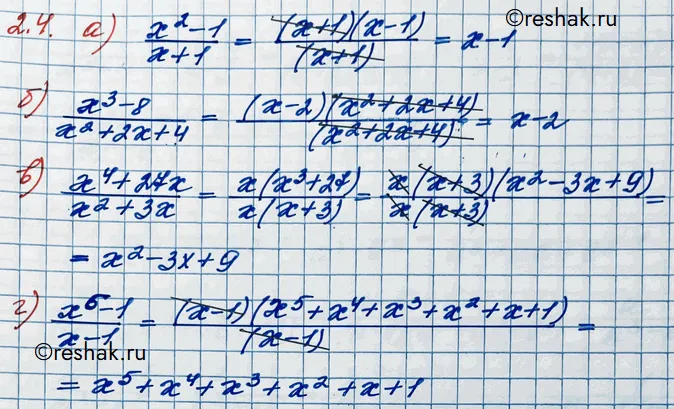 ©reshak.ru
2.4. а) x²-1/x+1 = (x+1)(x-1)/(x+1) = x-1
б) x³-8/x²+2x+4 = (x-2)(x²+2x+4)/(x²+2x+4) = x-2
в) x⁴+27x/x²+3x = x(x³+27)/x(x+3) = x(x+3)(x²-3x+9)/x(x+3) =
= x²-3x+9
г) x⁶-1/x-1 = (x-1)(x⁵+x⁴+x³+x²+x+1)/(x-1) =
©reshak.ru
= x⁵+x⁴+x³+x²+x+1